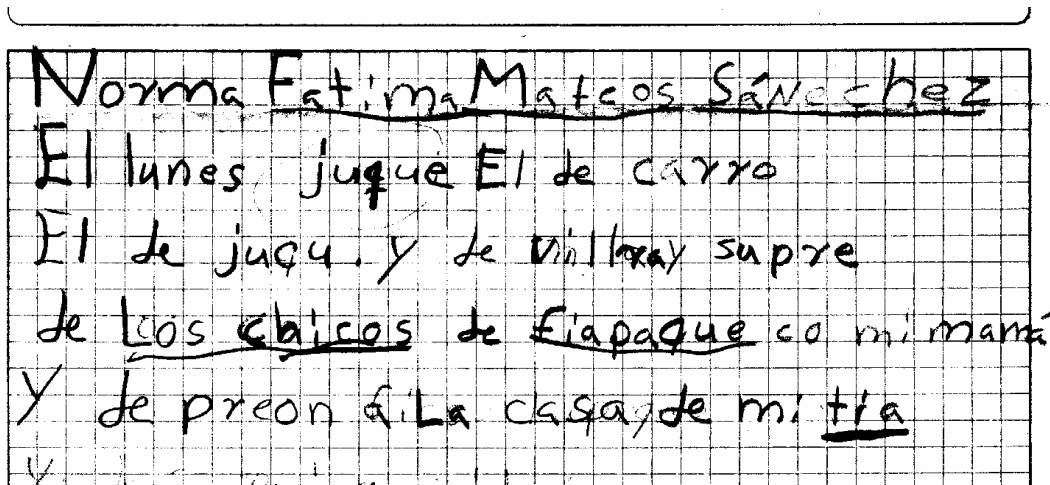 Norma Fatima Mateos Sánchez
El lunes juque El de carro
El de juqu. y de supre
de Los chicos de fiapaque co mi mamá
Y de preon a La casa, de mi tía